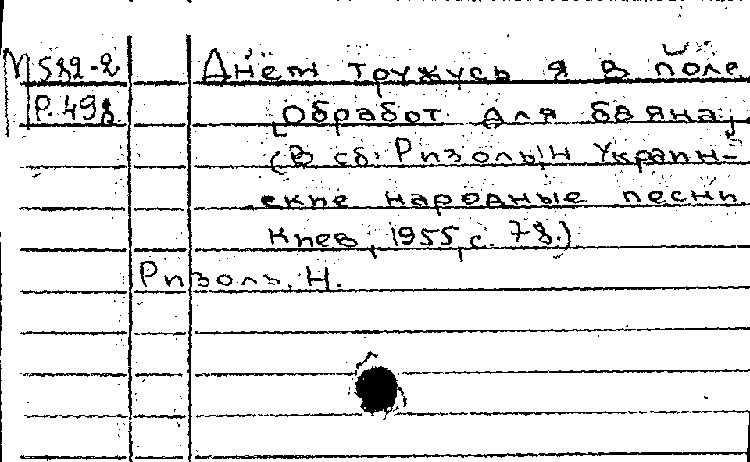 М 532-2 Днём тружусь я в поле
Р. 498 [Обработ для баяна]
(В сб: Ризоль, Н Украин-
ские народные песни
Киев, 1955, с. 7-8.)
Ризоль, Н.